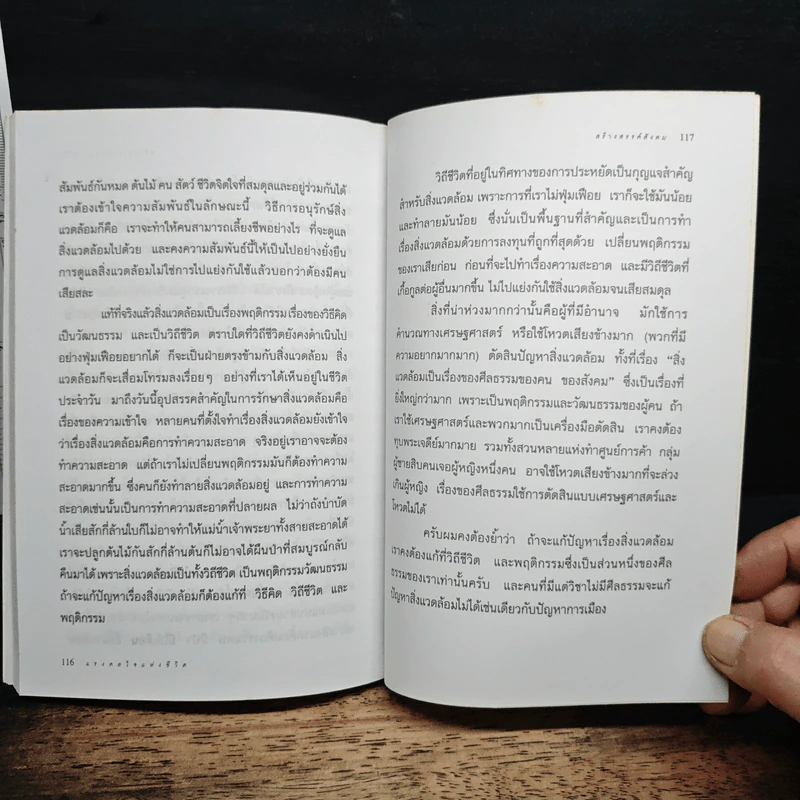 สัมพันธ์กันหมด ต้นไม้ คน สัตว์ ชีวิตจิตใจที่สมดุลและอยู่ร่วมกันได้
เราต้องเข้าใจความสัมพันธ์ในลักษณะนี้ วิธีการอนุรักษ์สิ่ง
แวดล้อมก็คือ เราจะทำให้คนสามารถเลี้ยงชีพอย่างไร ที่จะดูแล
สิ่งแวดล้อมไปด้วย และคงความสัมพันธ์นี้ให้เป็นไปอย่างยั่งยืน
การดูแลสิ่งแวดล้อมไม่ใช่การไปแย่งกันใช้แล้วบอกว่าต้องมีคน
เสียสละ
แท้ที่จริงแล้วสิ่งแวดล้อมเป็นเรื่องพฤติกรรม เรื่องของวิธีคิด
เป็นวัฒนธรรม และเป็นวิถีชีวิต ตราบใดที่วิถีชีวิตยังคงดำเนินไป
อย่างฟุ่มเฟือยอยากได้ ก็จะเป็นฝ่ายตรงข้ามกับสิ่งแวดล้อม สิ่ง
แวดล้อมก็จะเสื่อมโทรมลงเรื่อยๆ อย่างที่เราได้เห็นอยู่ในชีวิต
ประจำวัน มาถึงวันนี้อุปสรรคสำคัญในการรักษาสิ่งแวดล้อมคือ
เรื่องของความเข้าใจ หลายคนที่ตั้งใจทำเรื่องสิ่งแวดล้อมยังเข้าใจ
ว่าเรื่องสิ่งแวดล้อมคือการทำความสะอาด จริงอยู่เราอาจจะต้อง
ทำความสะอาด แต่ถ้าเราไม่เปลี่ยนพฤติกรรมมันก็ต้องทำความ
สะอาดมากขึ้น ซึ่งคนก็ยังทำลายสิ่งแวดล้อมอยู่ และการทำความ
สะอาดเช่นนั้นเป็นการทำความสะอาดที่ปลายผล ไม่ว่าถังบำบัด
น้ำเสียสักกี่ล้านใบก็ไม่อาจทำให้แม่น้ำเจ้าพระยาทั้งสายสะอาดได้
เราจะปลูกต้นไม้กันสักกี่ล้านต้นก็ไม่อาจได้ผืนป่าที่สมบูรณ์กลับ
คืนมาได้ เพราะสิ่งแวดล้อมเป็นทั้งวิถีชีวิต เป็นพฤติกรรมวัฒนธรรม
ถ้าจะแก้ปัญหาเรื่องสิ่งแวดล้อมก็ต้องแก้ที่ วิธีคิด วิถีชีวิต และ
พฤติกรรม
116 แรงดลใจแห่งชีวิต
สร้างสรรค์สังคม 117
วิถีชีวิตที่อยู่ในทิศทางของการประหยัดเป็นกุญแจสำคัญ
สำหรับสิ่งแวดล้อม เพราะการที่เราไม่ฟุ่มเฟือย เราก็จะใช้มันน้อย
และทำลายมันน้อย ซึ่งนั่นเป็นพื้นฐานที่สำคัญและเป็นการทำ
เรื่องสิ่งแวดล้อมด้วยการลงทุนที่ถูกที่สุดด้วย เปลี่ยนพฤติกรรม
ของเราเสียก่อน ก่อนที่จะไปทำเรื่องความสะอาด และมีวิถีชีวิตที่
เกื้อกูลต่อผู้อื่นมากขึ้น ไม่ไปแย่งกันใช้สิ่งแวดล้อมจนเสียสมดุล
สิ่งที่น่าห่วงมากกว่านั้นคือผู้ที่มีอำนาจ มักใช้การ
คำนวณทางเศรษฐศาสตร์ หรือใช้โหวตเสียงข้างมาก (พวกที่มี
ความอยากมากมาก) ตัดสินปัญหาสิ่งแวดล้อม ทั้งที่เรื่อง “สิ่ง
แวดล้อมเป็นเรื่องของศีลธรรมของคน ของสังคม” ซึ่งเป็นเรื่องที่
ยิ่งใหญ่กว่ามาก เพราะเป็นพฤติกรรมและวัฒนธรรมของผู้คน ถ้า
เราใช้เศรษฐศาสตร์และพวกมากเป็นเครื่องมือตัดสิน เราคงต้อง
ทุบพระเจดีย์มากมาย รวมทั้งสวนหลายแห่งทำศูนย์การค้า กลุ่ม
ผู้ชายสิบคนเจอผู้หญิงหนึ่งคน อาจใช้โหวตเสียงข้างมากที่จะล่วง
เกินผู้หญิง เรื่องของศีลธรรมใช้การตัดสินแบบเศรษฐศาสตร์และ
โหวตไม่ได้
ครับผมคงต้องย้ำว่า ถ้าจะแก้ปัญหาเรื่องสิ่งแวดล้อม
เราคงต้องแก้ที่วิถีชีวิต และพฤติกรรมซึ่งเป็นส่วนหนึ่งของศีล
ธรรมของเราเท่านั้นครับ และคนที่มีแต่วิชาไม่มีศีลธรรมจะแก้
ปัญหาสิ่งแวดล้อมไม่ได้เช่นเดียวกับปัญหาการเมือง